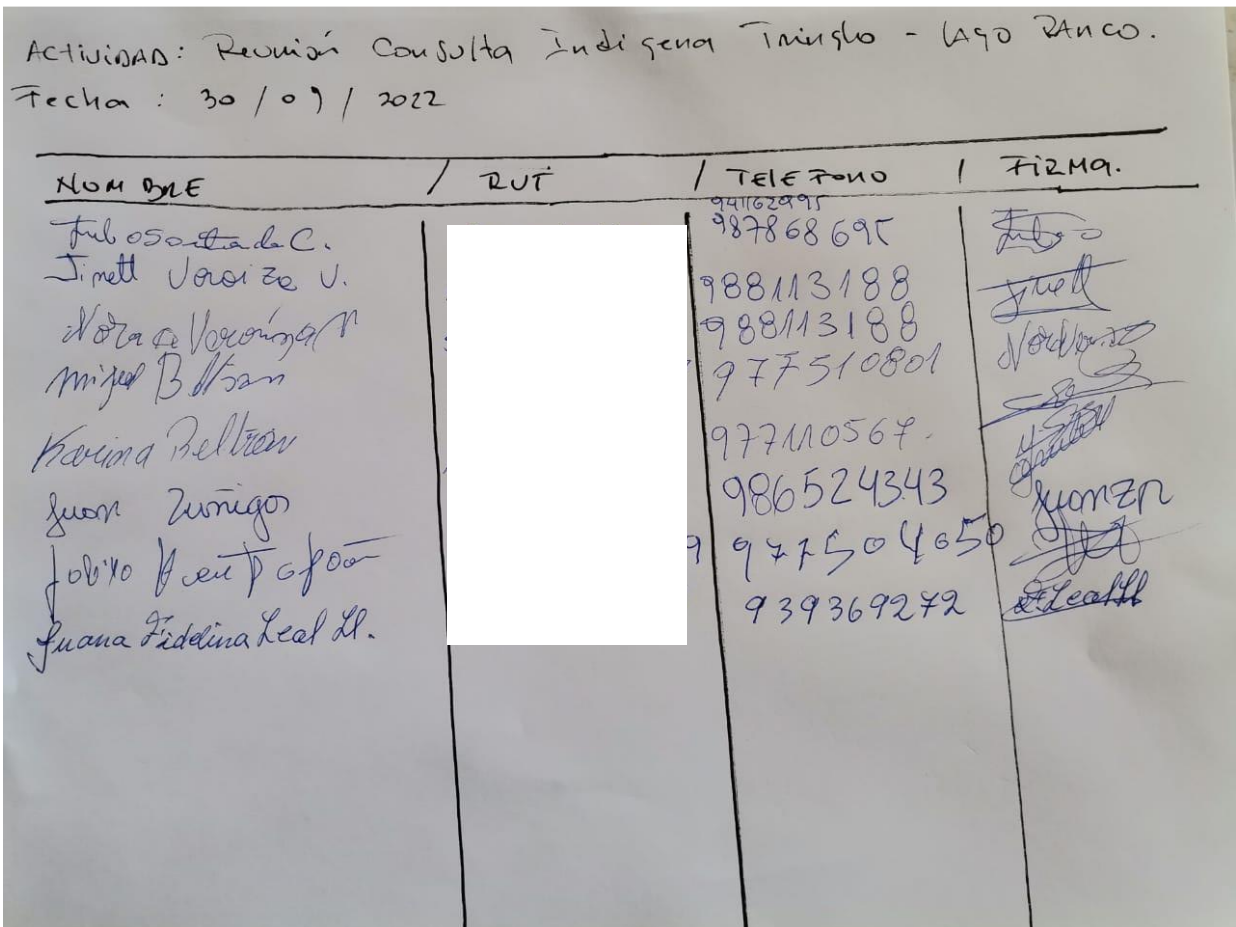 ACTIVIDAD: Reunión Consulta Indigena Tringlo - LAGO RANCO.
Fecha : 30 / 09 / 2022
NOMBRE / RUT / TELEFONO / FIRMA.
941162995
C. 987868695
Jinett V. 988113188 Jinett
Nora 988113188
Miguel Beltran 977510801
Karina Beltran 977110567.
Juan Zuñiga 986524343 Juan ZR
9 977504050
Juana Fidelina Leal Ll. 939369272 F. Leal Ll